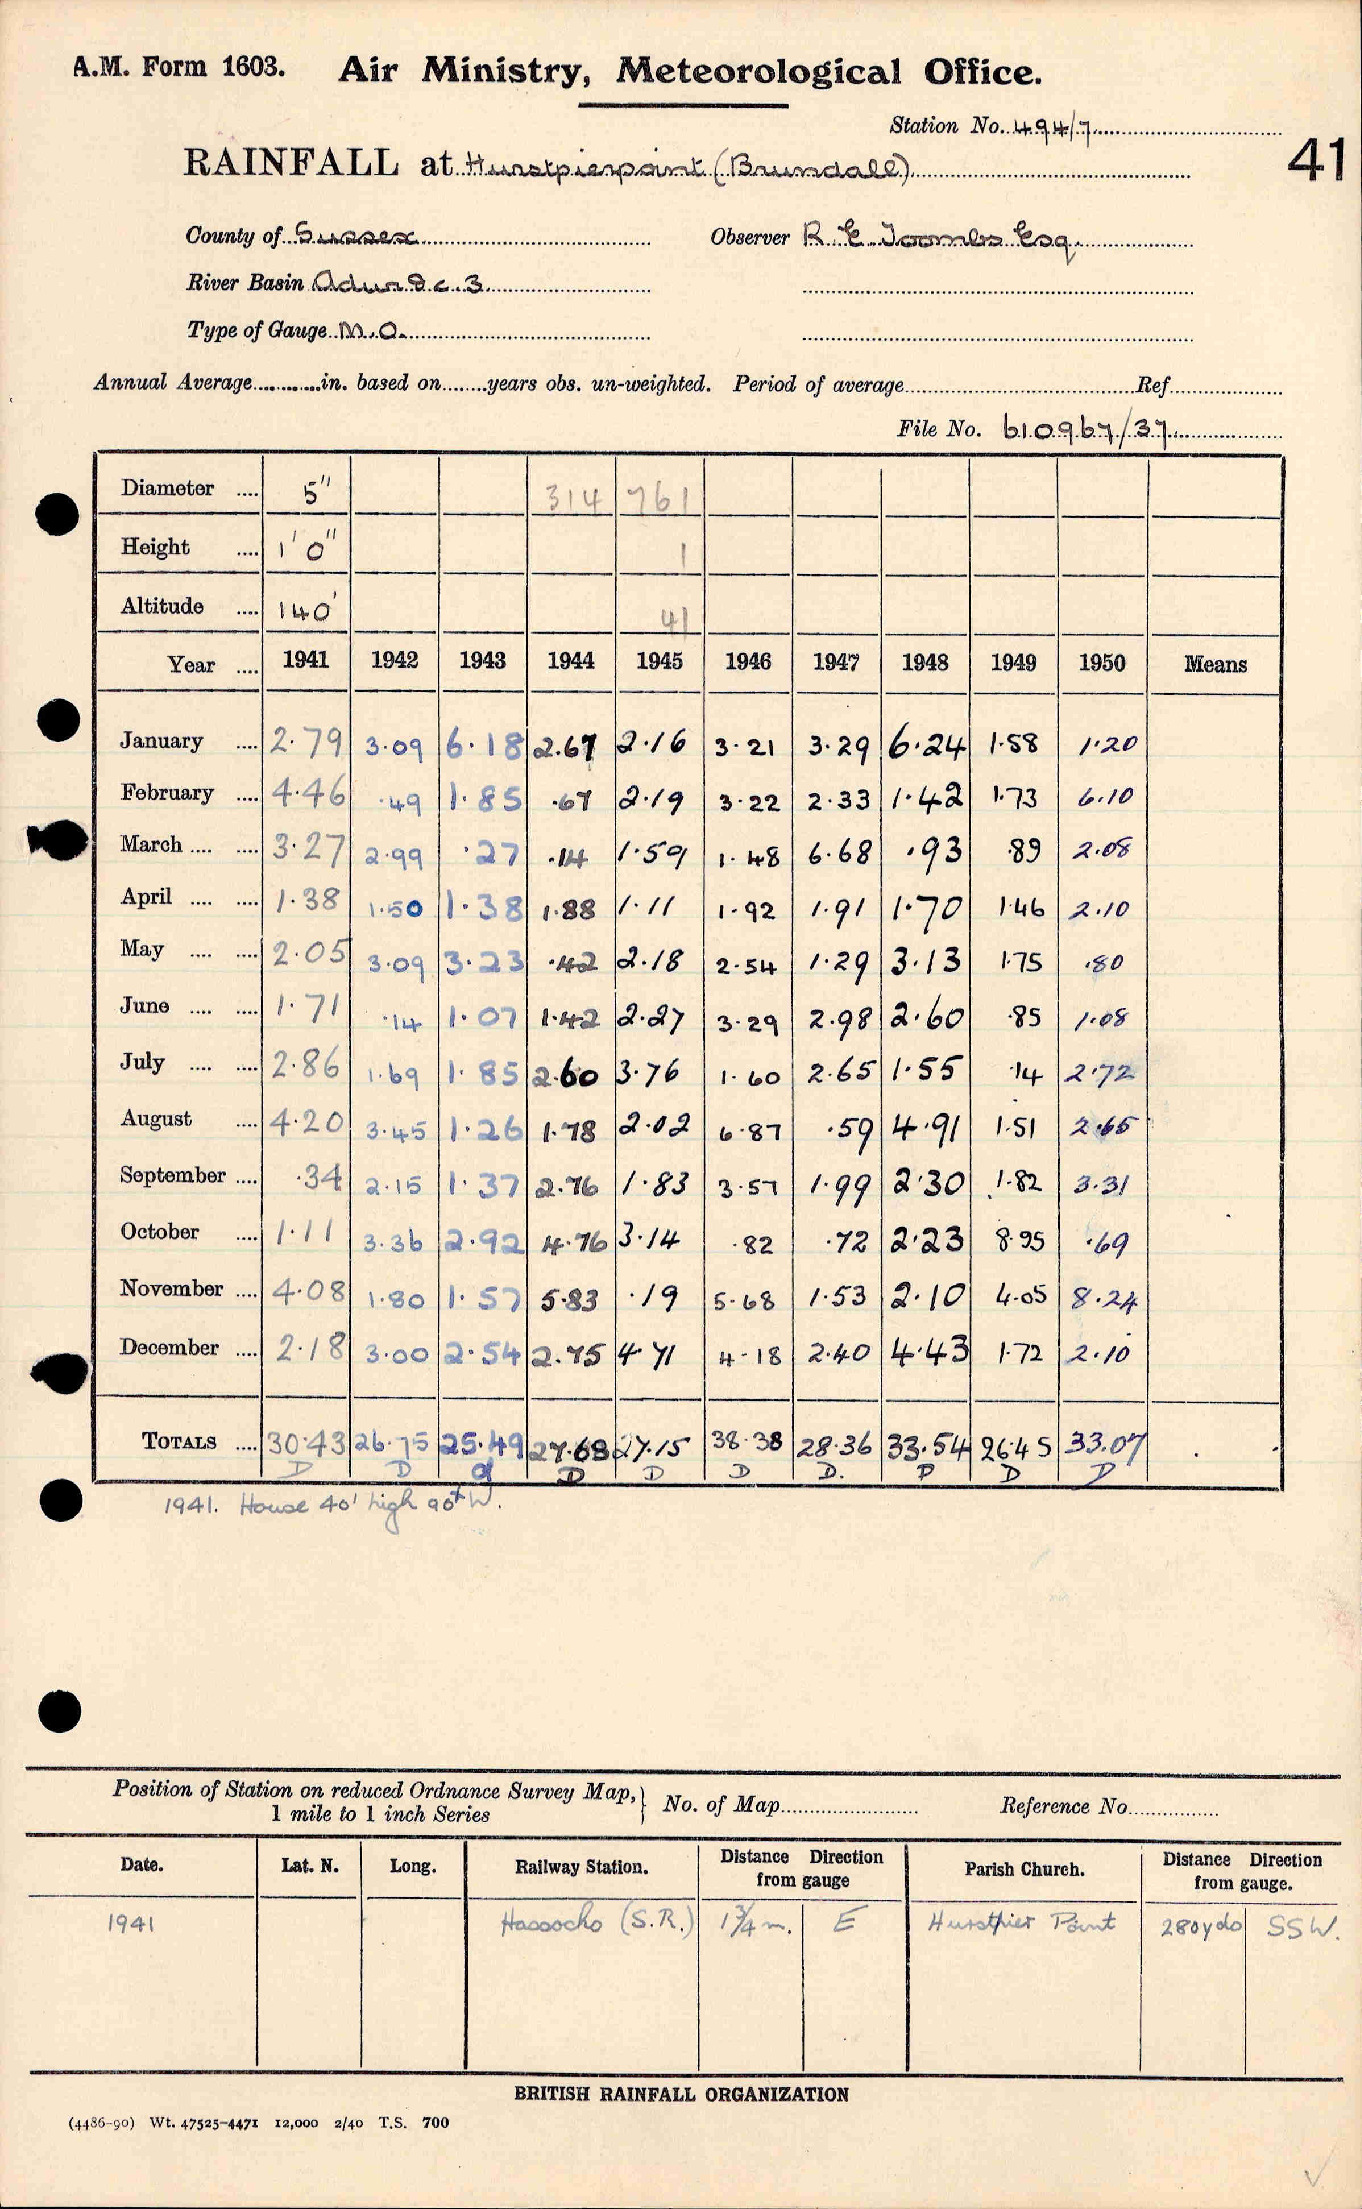 A.M. Form 1603. Air Ministry, Meteorological Office.
Station No. 494/7
41
RAINFALL at Hurstpierpoint (Brundall)
County of Sussex Observer R. E. Toombs Esq.
River Basin Adur &c. 3
Type of Gauge M.O.
Annual Average in. based on years obs. un-weighted. Period of average Ref
File No. 610967/37
Diameter .... 5" 314 761
Height .... 1' 0" 1
Altitude .... 140' 41
Year .... 1941 1942 1943 1944 1945 1946 1947 1948 1949 1950 Means
January .... 2.79 3.09 6.18 2.67 2.16 3.21 3.29 6.24 1.58 1.20
February .... 4.46 .49 1.85 .67 2.19 3.22 2.33 1.42 1.73 6.10
March .... .... 3.27 2.99 .27 .14 1.59 1.48 6.68 .93 .89 2.08
April .... .... 1.38 1.50 1.38 1.88 1.11 1.92 1.91 1.70 1.46 2.10
May .... .... 2.05 3.09 3.23 .42 2.18 2.54 1.29 3.13 1.75 .80
June .... .... 1.71 .14 1.07 1.42 2.27 3.29 2.98 2.60 .85 1.08
July .... .... 2.86 1.69 1.85 2.60 3.76 1.60 2.65 1.55 .14 2.72
August .... 4.20 3.45 1.26 1.78 2.02 6.87 .59 4.91 1.51 2.65
September .... .34 2.15 1.37 2.76 1.83 3.57 1.99 2.30 1.82 3.31
October .... 1.11 3.36 2.92 4.76 3.14 .82 .72 2.23 8.95 .69
November .... 4.08 1.80 1.57 5.83 .19 5.68 1.53 2.10 4.05 8.24
December .... 2.18 3.00 2.54 2.75 4.71 4.18 2.40 4.43 1.72 2.10
TOTALS .... 30.43 26.75 25.49 27.68 27.15 38.38 28.36 33.54 26.45 33.07
D D d D D D D. D D D
1941. House 40' high 90ft W.
Position of Station on reduced Ordnance Survey Map,} No. of Map Reference No
1 mile to 1 inch Series
Date. Lat. N. Long. Railway Station. Distance Direction from gauge Parish Church. Distance Direction from gauge.
1941 Hassocks (S.R.) 1¾ m. E Hurstpier Point 280 yds SSW.
BRITISH RAINFALL ORGANIZATION
(4486-90) Wt. 47525-4471 12,000 2/40 T.S. 700